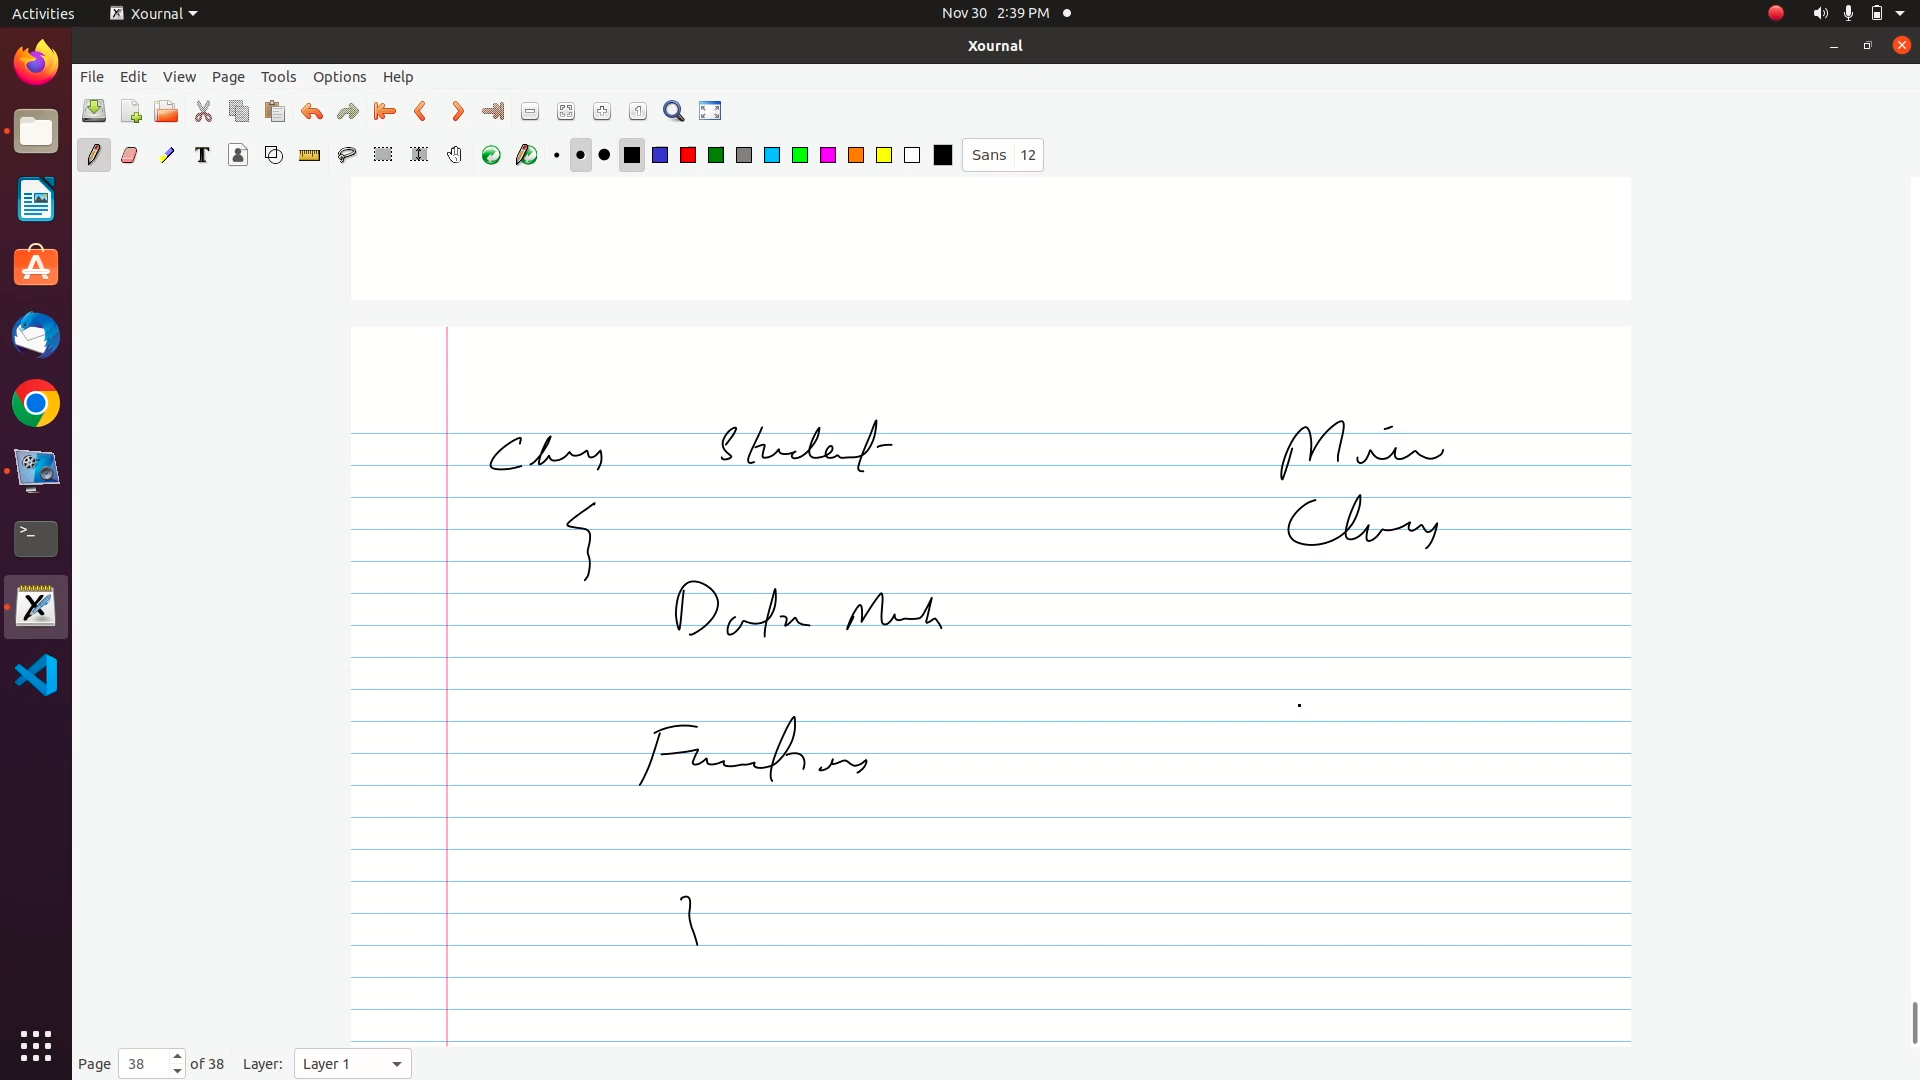 Activities Xournal Nov 30 2:39 PM
Xournal
File Edit View Page Tools Options Help
T Sans 12
Class Student Main
{ Class
Data
Functions
}
Page 38 of 38 Layer: Layer 1